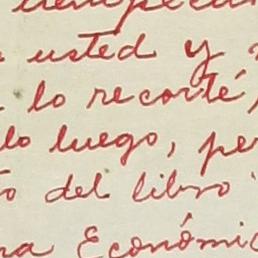 usted y
lo recorté,
lo luego, pe
o del libro
ra Económic